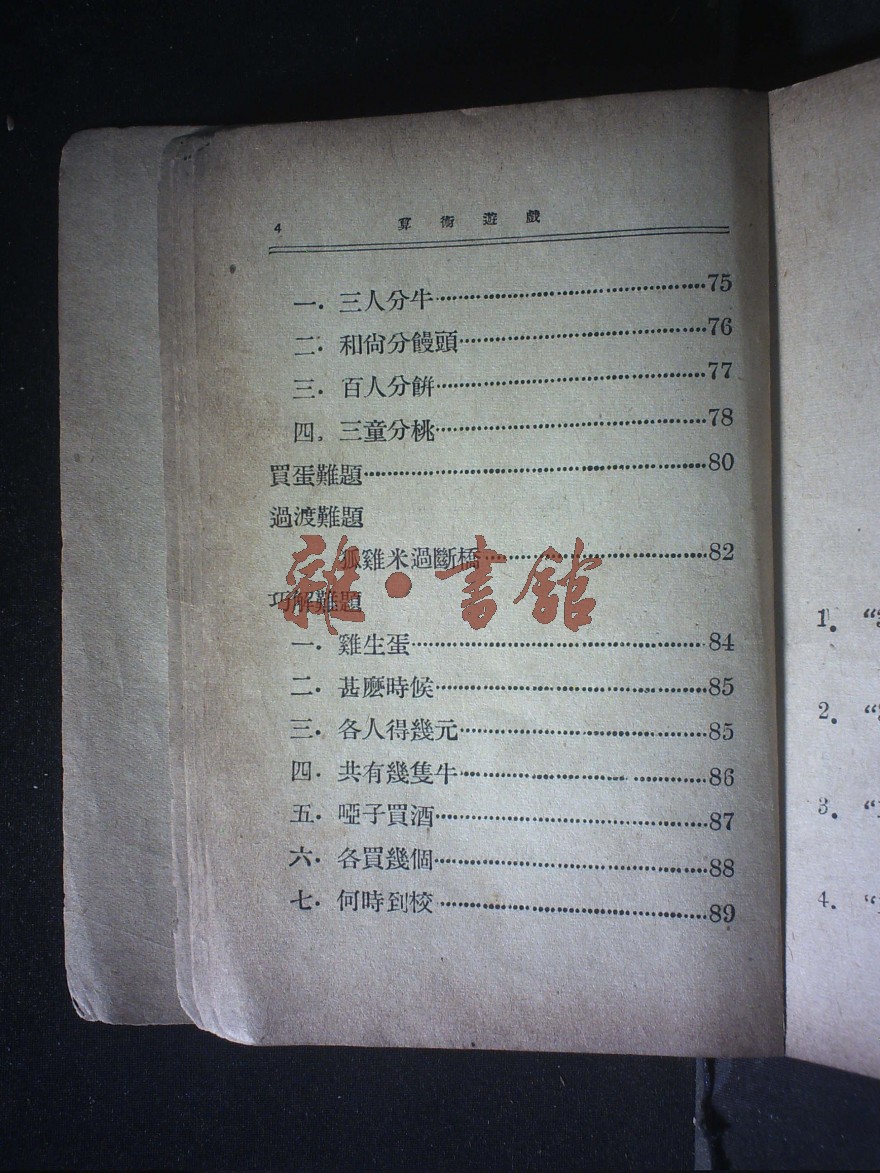 4 算術遊戲
一. 三人分牛……75
二. 和尙分饅頭……76
三. 百人分餠……77
四. 三童分桃……78
買蛋難題……80
過渡難題
狐雞米過斷橋……82
巧解難題
一. 雞生蛋……84
二. 甚麽時候……85
三. 各人得幾元……85
四. 共有幾隻牛……86
五. 啞子買酒……87
六. 各買幾個……88
七. 何時到校……89
雜·書館
1.
2.
3.
4.